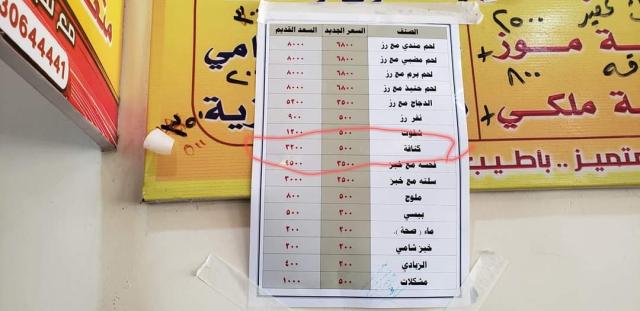 30644441
٢٥٠٠
مـوز+
٨٠٠
ملكي+
متميز .. بأطيب
الصنف السعر الجديد السعد القديم
لحم مندي مع رز ٦٨٠٠ ٨٠٠٠
لحم مضبي مع رز ٦٨٠٠ ٨٠٠٠
لحم برم مع رز ٦٨٠٠ ٨٠٠٠
لحم حنيذ مع رز ٦٨٠٠ ٨٠٠٠
الدجاج مع رز ٣٥٠٠ ٥٢٠٠
نفر رز ٥٠٠ ٩٠٠
شفوت ٥٠٠ ١٢٠٠
كنافة ٥٠٠ ٢٢٠٠
فحسه مع خبز ٣٥٠٠ ٤٥٠٠
سلته مع خبز ٢٥٠٠ ٣٠٠٠
ملوج ٥٠٠ ٨٠٠
ببسي ٣٠٠ ٥٠٠
ماء ( صحة ). ٢٠٠ ٣٠٠
خبز شامي ٢٠٠ ٢٠٠
الزبادي ٣٠٠ ٤٠٠
مشكلات ٥٠٠ ١٠٠٠